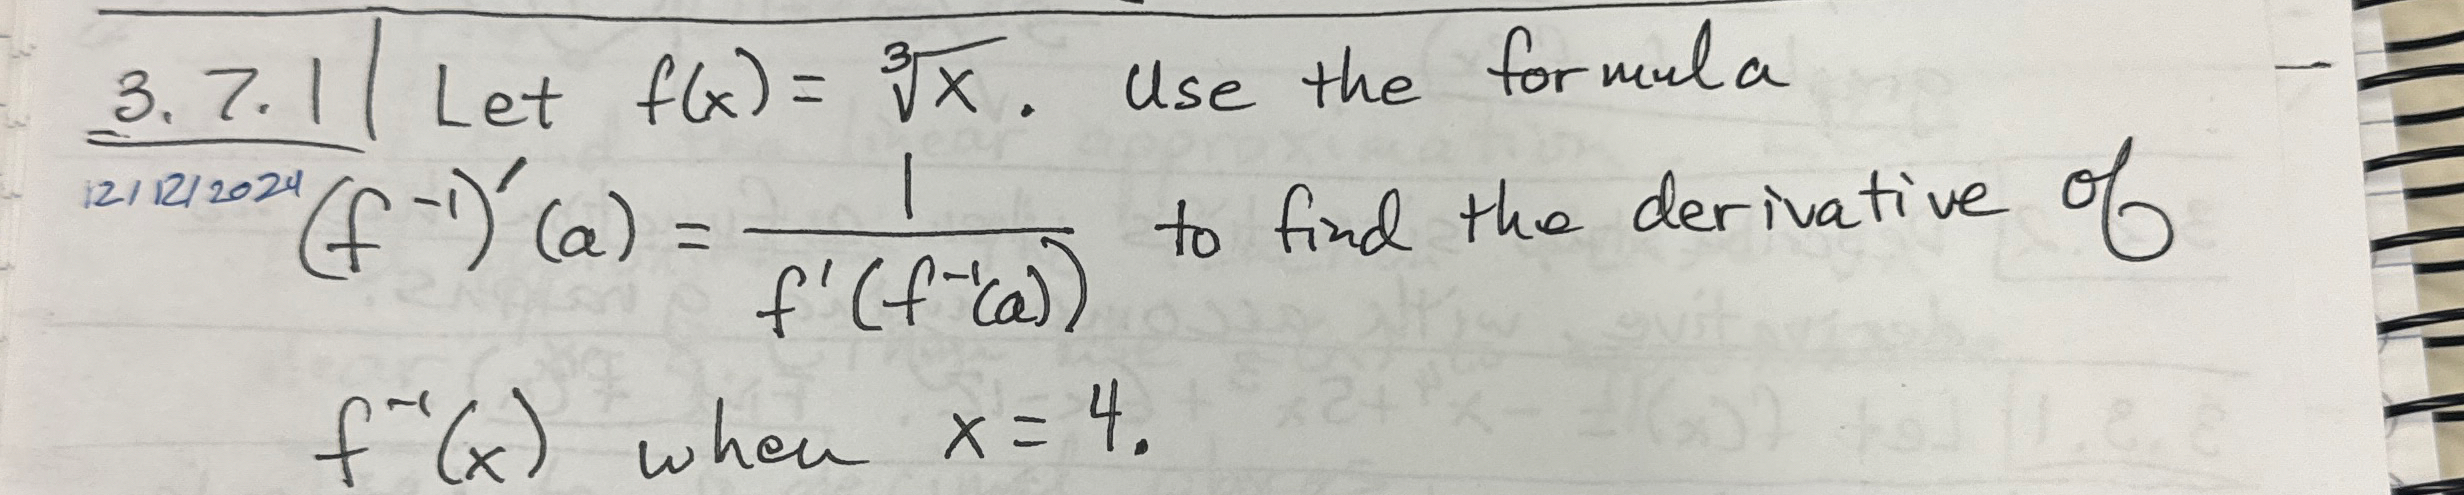 3.7.1 Let f(x) = ∛x. Use the formula
12/12/2024 (f⁻¹)′(a) = 1 / f′(f⁻¹(a)) to find the derivative of
f⁻¹(x) when x = 4.